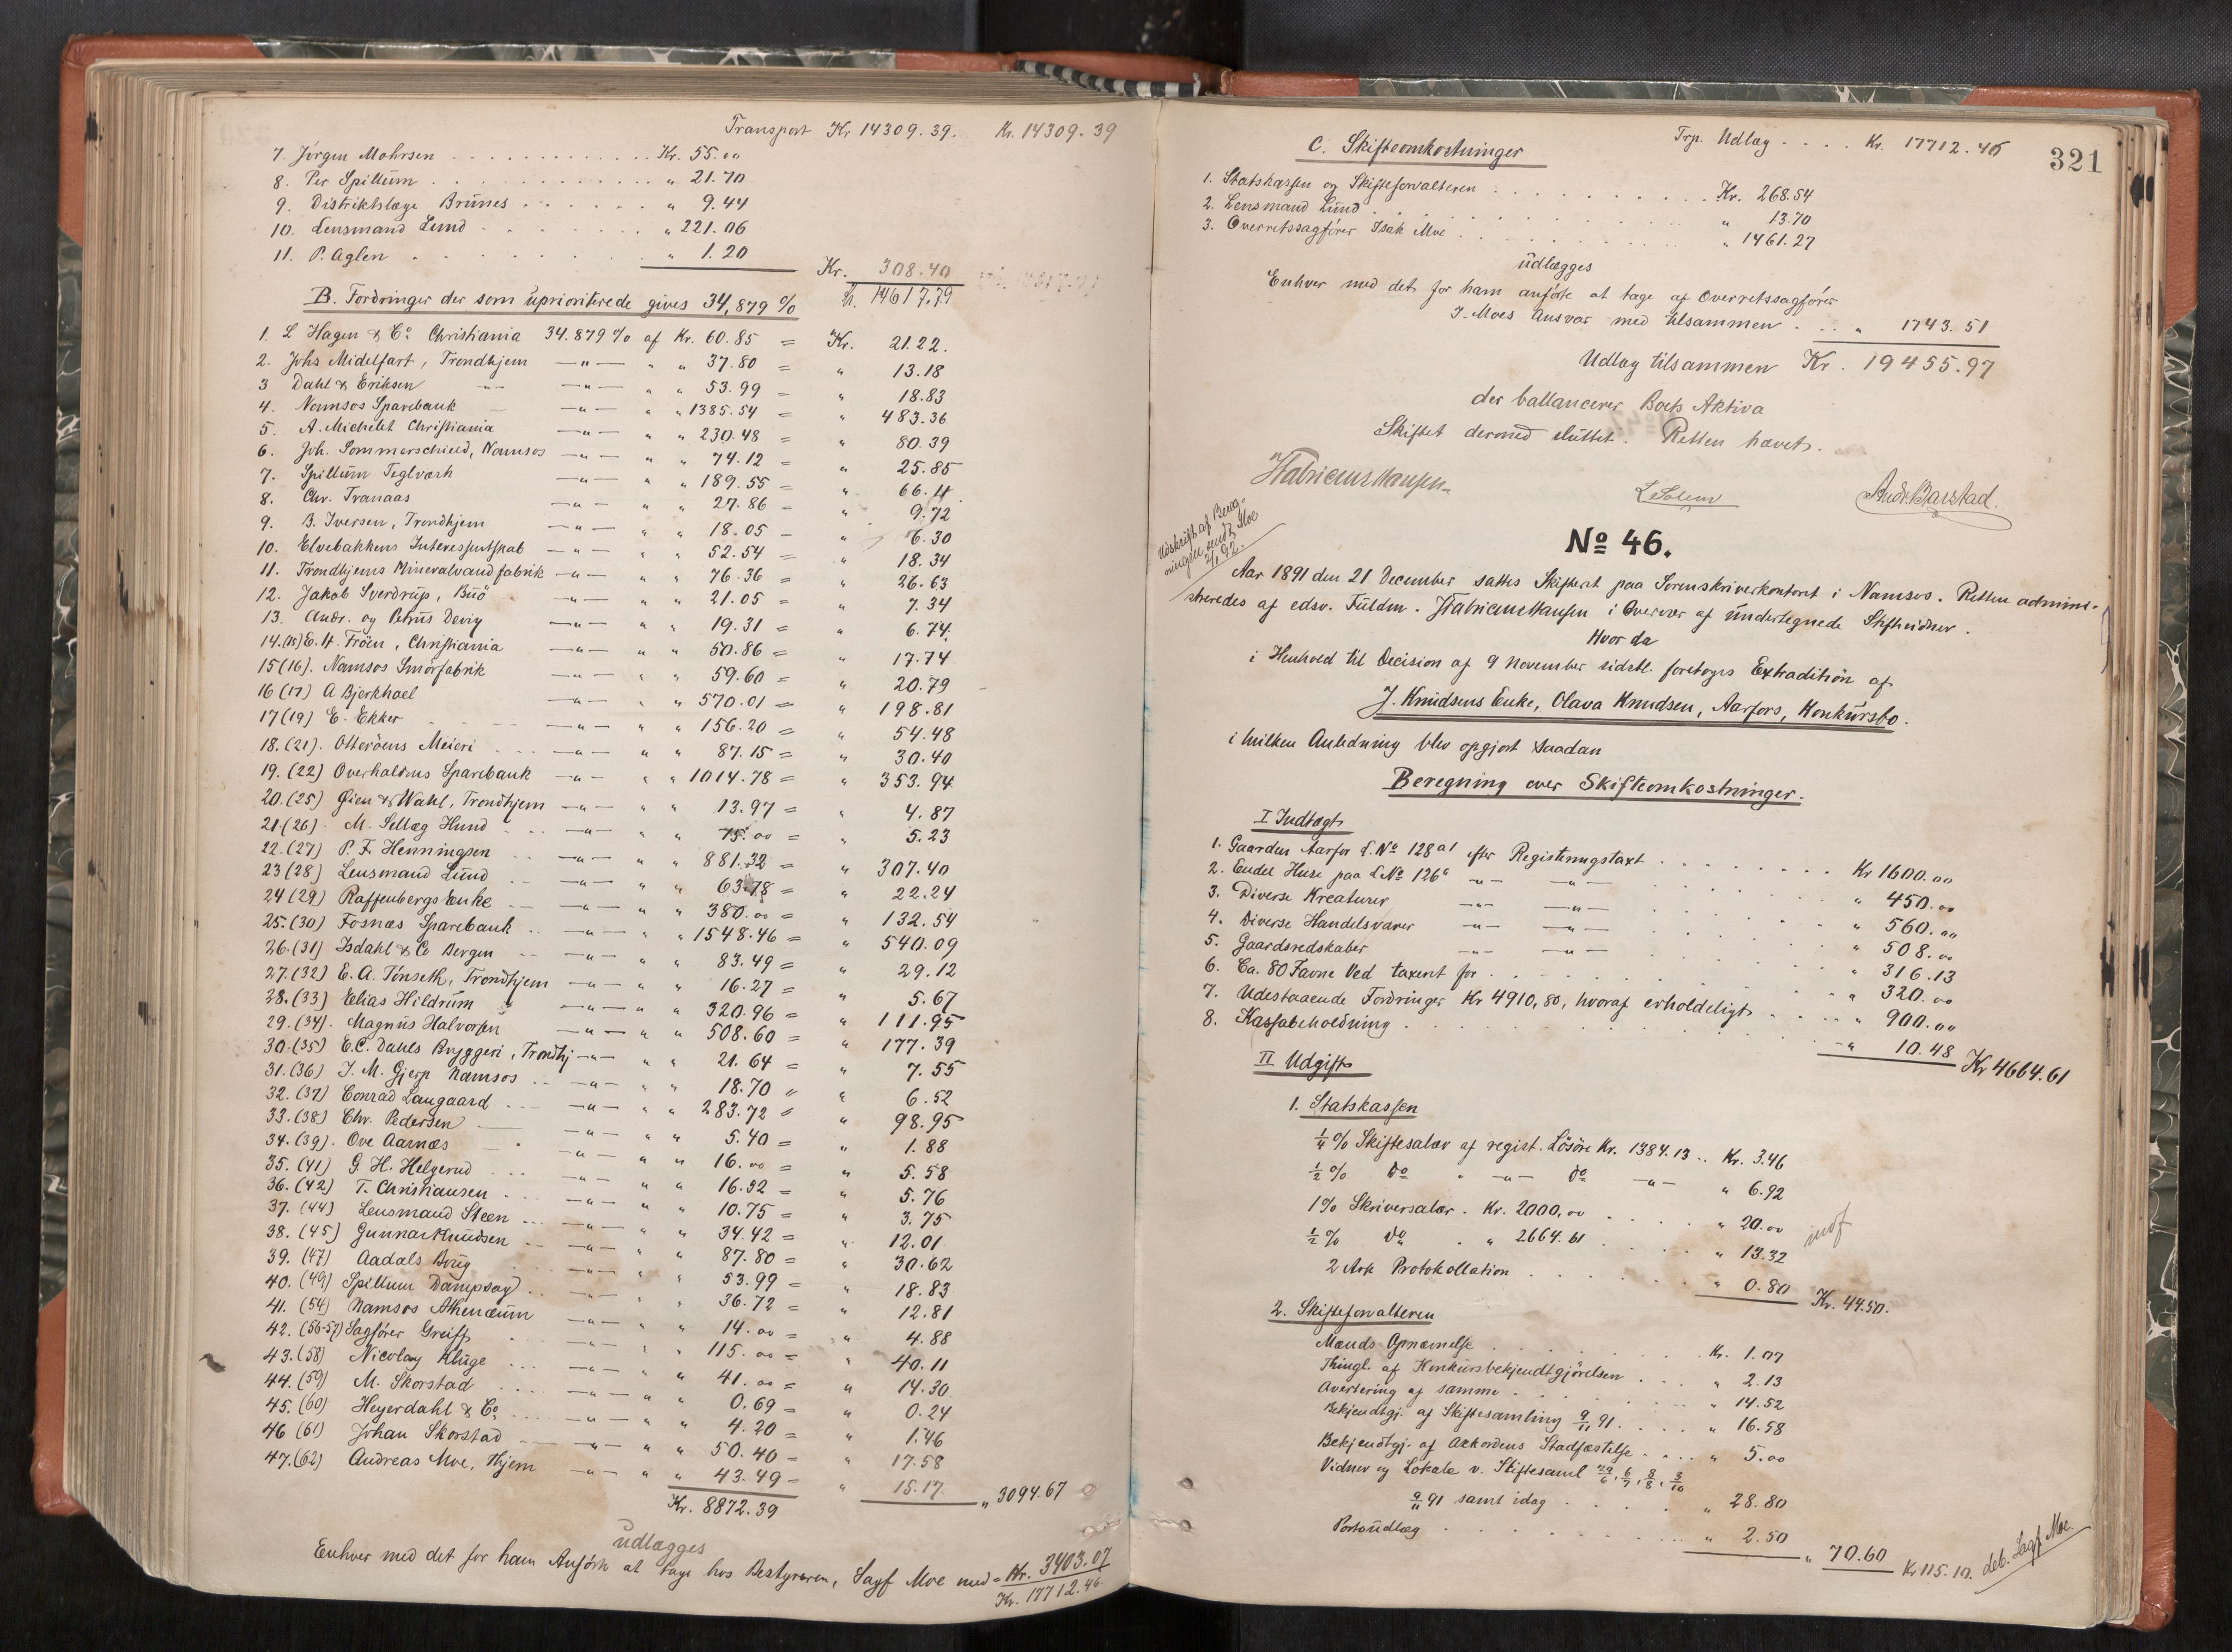 Transport Kr 14309.39. Kr. 14309.39
7. Jörgen Mohrsen . . . . . . . . . . . . Kr. 55.00
8. Per Spillum . . . . . . . . . . . . " 21.70
9. Distriktslæge Brünes . . . . . . " 9.44
10. Lensmand Lund . . . . . . . . " 221.06
11. P. Aglen . . . . . . . . . . " 1.20
Kr. 308.40
Kr. 14617.79
B. Fordringer der som uprioriterede gives 34,879 %
1. L Hagen & Co. Christiania 34.879 % af Kr. 60.85 = Kr. 21.22.
2. Johs Midelfart, Trondhjem —"— " " 37.80 = " 13.18
3 Dahl & Eriksen —"— —"— " " 53.99 = " 18.83
4. Namsos Sparebank —"— " " 1385.54 = " 483.36
5. A. Michelet Christiania —"— " " 230.48 = " 80.39
6. Joh. Sommerschied, Namsos —"— " " 74.12 = " 25.85
7. Spillum Teglværk —"— " " 189.55 = " 66.11
8. Chr. Tranaas —"— " " 27.86 = " 9.72
9. B. Iversen, Trondhjem —"— " " 18.05 — " 6.30
10. Elvebakkens Interessentskab —"— " " 52.54 = " 18.34
11. Trondhjems Mineralvandfabrik —"— " " 76.36 = " 26.63
12. Jakob Sverdrup, Buö —"— " " 21.05 = " 7.34
13. Andr. og Petrus Devig —"— " " 19.31 = " 6.74.
14.(15) E. H. Fröen, Christiania —"— " " 50.86 = " 17.74
15 (16). Namsos Smörfabrik —"— " " 59.60 = " 20.79
16 (17) A Bjerkhael —"— " " 570.01 = " 198.81
17 (19) E. Ekker . . . —"— " " 156.20 = " 54.48
18. (21). Otteröens Meieri . . . —"— " " 87.15 = " 30.40
19. (22) Overhaldens Sparebank —"— " " 1014.78 = " 353.94
20. (25) Öien & Wahl, Trondhjem —"— " " 13.97 = " 4.87
21 (26). M. Sellæg Hund . . . —"— " " 15.00 = " 5.23
22. (27) P. F. Henningsen . . —"— " " 881.32 = " 307.40
23 (28) Lensmand Lund . . —"— " " 63.78 = " 22.24
24 (29) Raffenbergs Enke . . —"— " " 380.00 = " 132.54
25. (30) Fosnæs Sparebank . . —"— " " 1548.46 = " 540.09
26. (31) Isdahl & Co Bergen . . —"— " " 83.49 = " 29.12
27. (32) E. A. Tönseth, Trondhjem —"— " " 16.27 = " 5.67
28. (33) Elias Hildrum —"— " " 320.96 = " 111.95
29. (34). Magnus Halvorsen —"— " " 508.60 = " 177.39
30. (35) E.C. Dahls Bryggeri, Trondhj —"— " " 21.64 = " 7.55
31. (36) J. M. Gjerp Namsos . . —"— " " 18.70 " " 6.52
32. (37) Conrad Langaard . . . —"— " " 283.72 = " 98.95
33. (38) Chr. Pedersen —"— " " 5.40 = " 1.88
34. (39). Ove Aarnæs . —"— " " 16.00 = " 5.58
35. (41) G. H. Helgerud . . . —"— " " 16.52 = " 5.76
36. (42) T. Christiansen . . . —"— " " 10.75 = " 3.75
37. (44) Lensmand Steen . . . —"— " " 34.42 = " 12.01
38. (45) Gunnar Knudsen . . —"— " " 87.80 = " 30.62
39. (47) Aadals Brug . . . —"— " " 53.99 = " 18.83
40. (49) Spillum Dampsag . . —"— " " 36.72 = " 12.81
41. (54) Namsos Athenæum —"— " " 14.00 = " 4.88
42. (56-57) Sagförer Greiff . —"— " " 115.00 = " 40.11
43. (58) Nicolay Kluge . . . —"— " " 41.00 = " 14.30
44. (59) M. Skorstad . . . —"— " " 0.69 = " 0.24
45. (60) Heyerdahl & Co. . . . —"— " " 4.20 = " 1.46
46 (61) Johan Skorstad —"— " " 50.40 = " 17.58
47. (62) Andreas Moe, Thjem —"— " " 43.49 — " 15.17. " 3094.67
Kr. 8872.39
udlægges
Enhver med det for ham Anförte at tage hos Bestyreren, Sagf Moe med = Kr. 3403.07
Kr. 17712.46.
321
Trp. Udlæg . . . . Kr. 17712.46
C. Skifteomkostninger
1. Statskassen og Skifteforvalteren . . . . . . . . . Kr. 268.54
2. Lensmand Lund . . . . . . . . . . " 13.70
3. Overretssagförer Isak Moe . . . . . . . . " 1461.27
udlægges
Enhver med det for ham anförte at tage af Overretssagförer
I. Moes Ansvar med tilsammen . . . " 1743.51
Udlæg tilsammen Kr. 19455.97
der ballancerer Boets Aktiva
Skiftet dermed sluttet. Retten hævet.
L Solem Andr. Barstad.
Udskrift af Bereg-
ningen sendt Moe
2/1 92.
No 46.
Aar 1891 den 21 December sattes Skifteret paa Sorenskriverkontoret i Namsos. Retten admini-
streredes af edsv. Fuldm. i Overvær af undertegnede Skiftevidner.
Hvor da
i Henhold til Decision af 9 November sidstl. foretoges Extradition af
J. Knudsens Enke, Olava Knudsen, Aarfors, Konkursbo.
i hvilken Anledning blev opgjort saadan
Beregning over Skifteomkostninger.
I Indtægt
1. Gaarden Aarfor L. No 128 a1 efter Registeringstaxt . . . . . . . Kr 1600.00
2. Endel Huse paa L No 126 a —"— —"— . . . . " 450.00
3. Diverse Kreaturer —"— —"— . . . . " 560.00
4. Diverse Handelsvarer —"— —"— . . . . " 508.00
5. Gaardsredskaber —"— —"— . . . . " 316.13
6. Ca. 80 Favne Ved taxeret for . . . . . . " 320.00
7. Udestaaende Fordringer Kr 4910,80, hvoraf erholdeligt . . . . . " 900.00
8. Kassabeholdning . . . . . . . . . . " 10.48 Kr 4664.61
II Udgift
1. Statskassen
1/4 % Skiftesalær af regist. Lösöre Kr. 1384.13 . . Kr. 3.46
1/2 % Do " —"— Do —"— " 6.92
1 % Skriversalær . Kr. 2000,00 . . . . " 20.00
1/2 % Do . " 2664.61 . . . . " 13.32
2 Ark Protokollation . . . . . . . " 0.80 Kr. 44.50.
2. Skifteforvalteren
Mænds Opnævnelse . . . . . . . . Kr. 1.07
Thingl. af Konkursbekjendtgjörelsen . . . . " 2.13
Avertering af samme . . . . . . " 14.52
Bekjendtgj. af Skiftesamling 9/11 91 . . . . " 16.58
Bekjendtgj. af Akkordens Stadfæstelse . . . . " 5.00
Vidner og Lokale v. Skiftesaml 29/6, 6/7, 8/8, 3/10
9/11 91 samt idag . . . . . " 28.80
Portoudlæg . . . . . . . . . " 2.50 " 70.60 Kr 115.10. deb. Sagf Moe.